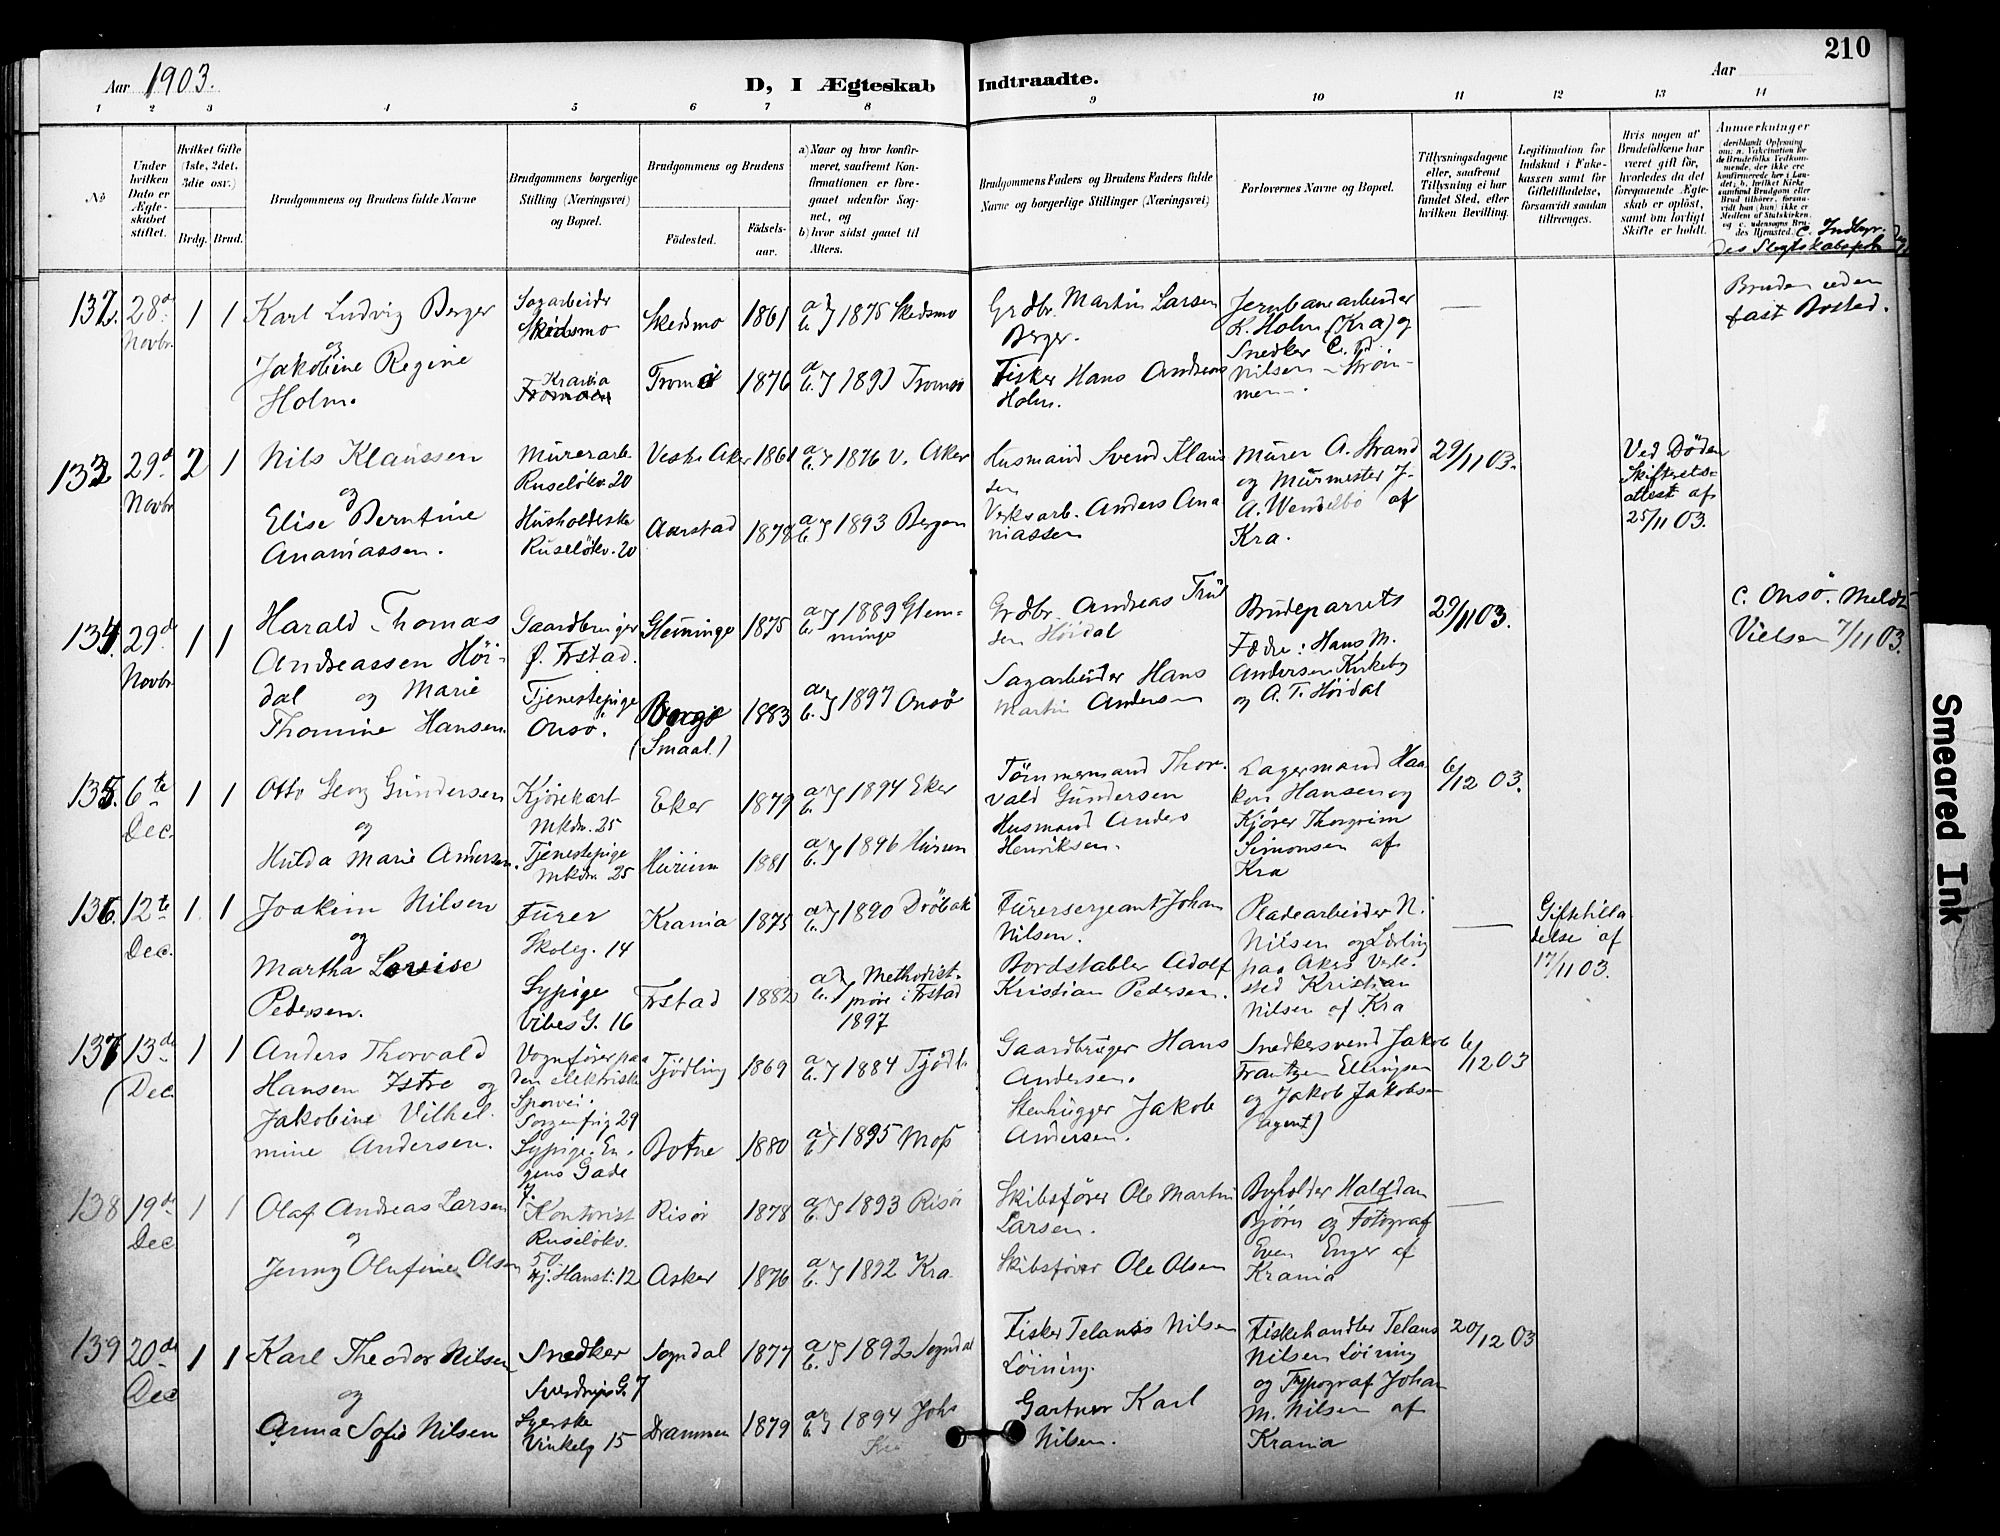 210
Aar 1903.
D, I Ægteskab Indtraadte.
Aar
1 2 3 4 5 6 7 8 9 10 11 12 13 14
No
Under hvilken Dato er Ægteskabet stiftet.
Hvilket Gifte (1ste, 2det, 3die osv.)
Brdg. Brud.
Brudgommens og Brudens fulde Navne
Brudgommens borgerlige Stilling (Næringsvei) og Bopæl.
Brudgommens og Brudens
Födested.
Födselsaar.
a) Naar og hvor konfirmeret, saafremt Konfirmationen er foregaaet udenfor Sognet, og
b) hvor sidst gaaet til Alters.
Brudgommens Faders og Brudens Faders fulde Navne og borgerlige Stillinger (Næringsvei)
Forlovernes Navne og Bopæl.
Tillysningsdagene eller, saafremt Tillysning ei har fundet Sted, efter hvilken Bevilling.
Legitimation for Indskud i Enkekassen samt for Giftetilladelse, forsaavidt saadan tiltrænges.
Hvis nogen af Brudefolkene har været gift för, hvorledes da det foregaaende Ægteskab er oplöst, samt om lovligt Skifte er holdt.
Anmærkninger
(deriblandt Oplysning om: a. Vakcination for de Brudefolks Vedkommende, der ikke ere konfirmerede her i Landet; b. hvilket Kirkesamfund Brudgom eller Brud tilhörer, forsaavidt han (hun) ikke er Medlem af Statskirken, og c. udensogns Brudes Hjemsted.
132. 28de Novbr. 1 1
Karl Ludvig Berger
og
Jakobine Regine
Holm.
Sagarbeider
Skedsmo
Krania
Skedsmo 1861 a b} 1875 Skedsmo
Tromsö 1876 a b} 1891 Tromsö
Grdbr. Martin Larsen
Berger.
Fisker Hans Andreas
Holm.
Jernbanearbeider
K. Holm (Kra) og
Snedker C. Fd.
Nilsen - Ström-
men -
—
Bruden uden
fast Bosted.
133. 29d Novbr 2 1
Nils Klaussen
og
Elise Berntine
Ananiassen.
Murerarb.
Ruselökv. 20
Husholderske
Ruselökv. 20
Vestre Aker 1861 a b} 1876 V. Aker
Aarstad 1878 a b} 1893 Bergen
Husmand Svend Klaus
sen
Verksarb. Anders Ana
niassen
Murer A. Strand
og Murmester J.
A. Wendelbo af
Kra.
29/11 03.
Ved Döden
Skifterets-
attest af
25/11 03.
134. 29de Novbr 1 1
Harald Thomas
Andreassen Höi-
dal og Marie
Thomine Hansen.
Gaardbruger
f. Frstad.
Tjenestepige
Onsö.
Glemminge 1875 a b} 1889 Glem-
minge
Borge
(Smaal.) 1883 a b} 1897 Onsö
Grdbr. Andreas Trul
sen Höidal
Sagarbeider Hans
Martin Andersen
Brudeparrets
Fædre: Hans M.
Andersen Kirkeby
og A. T. Höidal
29/11 03.
C. Onsö. Meldt
Vielsen 7/11 03.
135. 6te Dec. 1 1
Otto Georg Gundersen
og
Hulda Marie Andersen.
Kjörekarl
Mkdv. 25
Tjenestepige
Mkdv. 25
Eker 1879 a b} 1894 Eker
Hurum 1881 a b} 1896 Hurum
Tömmermand Thor-
vald Gundersen
Husmand Anders
Henriksen.
Lagermand Haa
kon Hansen og
Kjörer Thorgrim
Simonsen af
Kra
6/12 03.
136. 12te Dec. 1 1
Joakim Nilsen
og
Martha Lovise
Pedersen.
Furer
Skoleg. 14
Sypige
Vibes G. 16
Krania 1875 a b} 1890 Dröbak
Frstad 1882 a b} Methodist-
prove i Frstad
1897
Furersergeant Johan
Nilsen.
Bordstabler Adolf
Kristian Pedersen.
Pladearbeider N.
Nilsen og Lærling
paa Akers Verk-
sted Kristian
Nilsen af Kra
—
Giftetilla
delse af
17/11 03.
137 13de Dec. 1 1
Anders Thorvald
Hansen Istre og
Jakobine Vilhel-
mine Andersen.
Vognförer paa
den elektriske
Sporvei.
Sorgenfrig 29
Sypige. En-
gens Gade
7.
Tjödling 1869 a b} 1884 Tjödl.
Botne 1880 a b} 1895 Moss
Gaardbruger Hans
Andersen.
Stenhugger Jakob
Andersen.
Snedkersvend Jakob
Frantzen Ellingsen
og Jakob Jakobsen
(Agent)
6/12 03
138 19de Dec 1 1
Olaf Andreas Larsen
og
Jenny Olufine Olsen
Kontorist
Ruselökv.
50.
Hj. Hanst. 12
Risör 1878 a b} 1893 Risör
Asker 1876 a b} 1892 Kra.
Skibsförer Ole Martin
Larsen.
Skibsförer Ole Olsen
Bogholder Halfdan
Björn og Fotograf
Even Enger af
Krania
—
139 20de Dec 1 1
Karl Theodor Nilsen
og
Anna Sofie Nilsen
Snedker
Sverdrups G. 7
Syerske
Vinkelg 15
Sogndal 1877 a b} 1892 Sogndal
Drammen 1879 a b} 1894 Johs
Kra
Fisker Telanus Nilsen
Löining.
Gartner Karl
Nilsen.
Fiskehandler Telans
Nilsen Löining
og Typograf Johan
M. Nilsen af
Krania
20/12 03
Smeared Ink